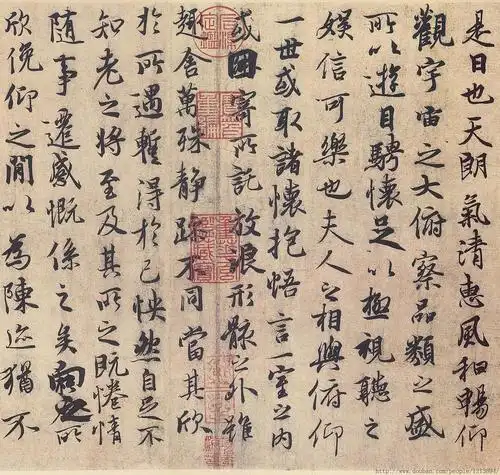 是日也天朗氣清惠風和暢仰
觀宇宙之大俯察品類之盛
所以遊目騁懷足以極視聽之
娛信可樂也夫人之相與俯仰
一世或取諸懷抱悟言一室之內
或因寄所託放浪形骸之外雖
趣舍萬殊靜躁不同當其欣
於所遇暫得於己怏然自足不
知老之將至及其所之既惓情
隨事遷感慨係之矣向之所
欣俛仰之閒以為陳迹猶不
http://www.douban.com/people/1313094/